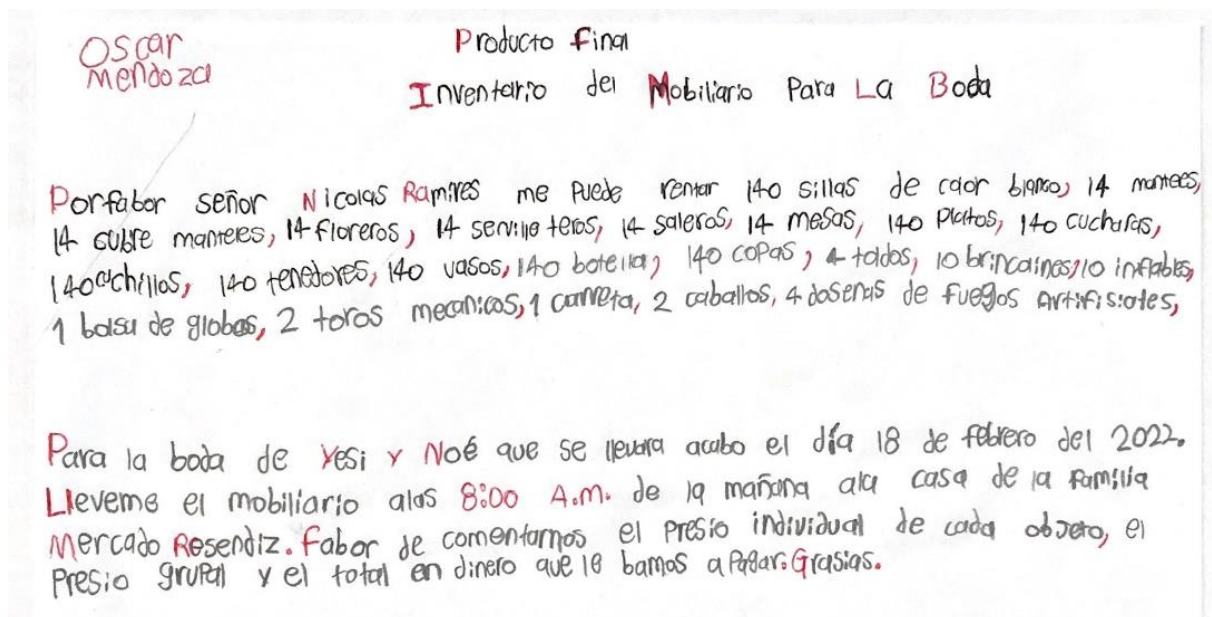 Oscar
Mendoza
Producto Final
Inventario del Mobiliario Para La Boda
Porfabor señor Nicolas Ramires me puede rentar 140 sillas de color blanco, 14 manteles,
14 cubre manteles, 14 floreros, 14 servilleteros, 14 saleros, 14 mesas, 140 platos, 140 cucharas,
140 cuchillos, 140 tenedores, 140 vasos, 140 botella, 140 copas, 4 toldos, 10 brincolines, 10 inflables,
1 bolsa de globos, 2 toros mecanicos, 1 carreta, 2 caballos, 4 dosenas de fuegos Artifisiales,
Para la boda de Yesi y Noé que se llevara acabo el día 18 de febrero del 2022.
Lleveme el mobiliario alas 8:00 A.M. de la mañana ala casa de la Familia
Mercado Resendiz. Fabor de comentarnos el presio individual de cada objeto, el
Presio grupal y el total en dinero que le bamos a Pagar. Grasias.